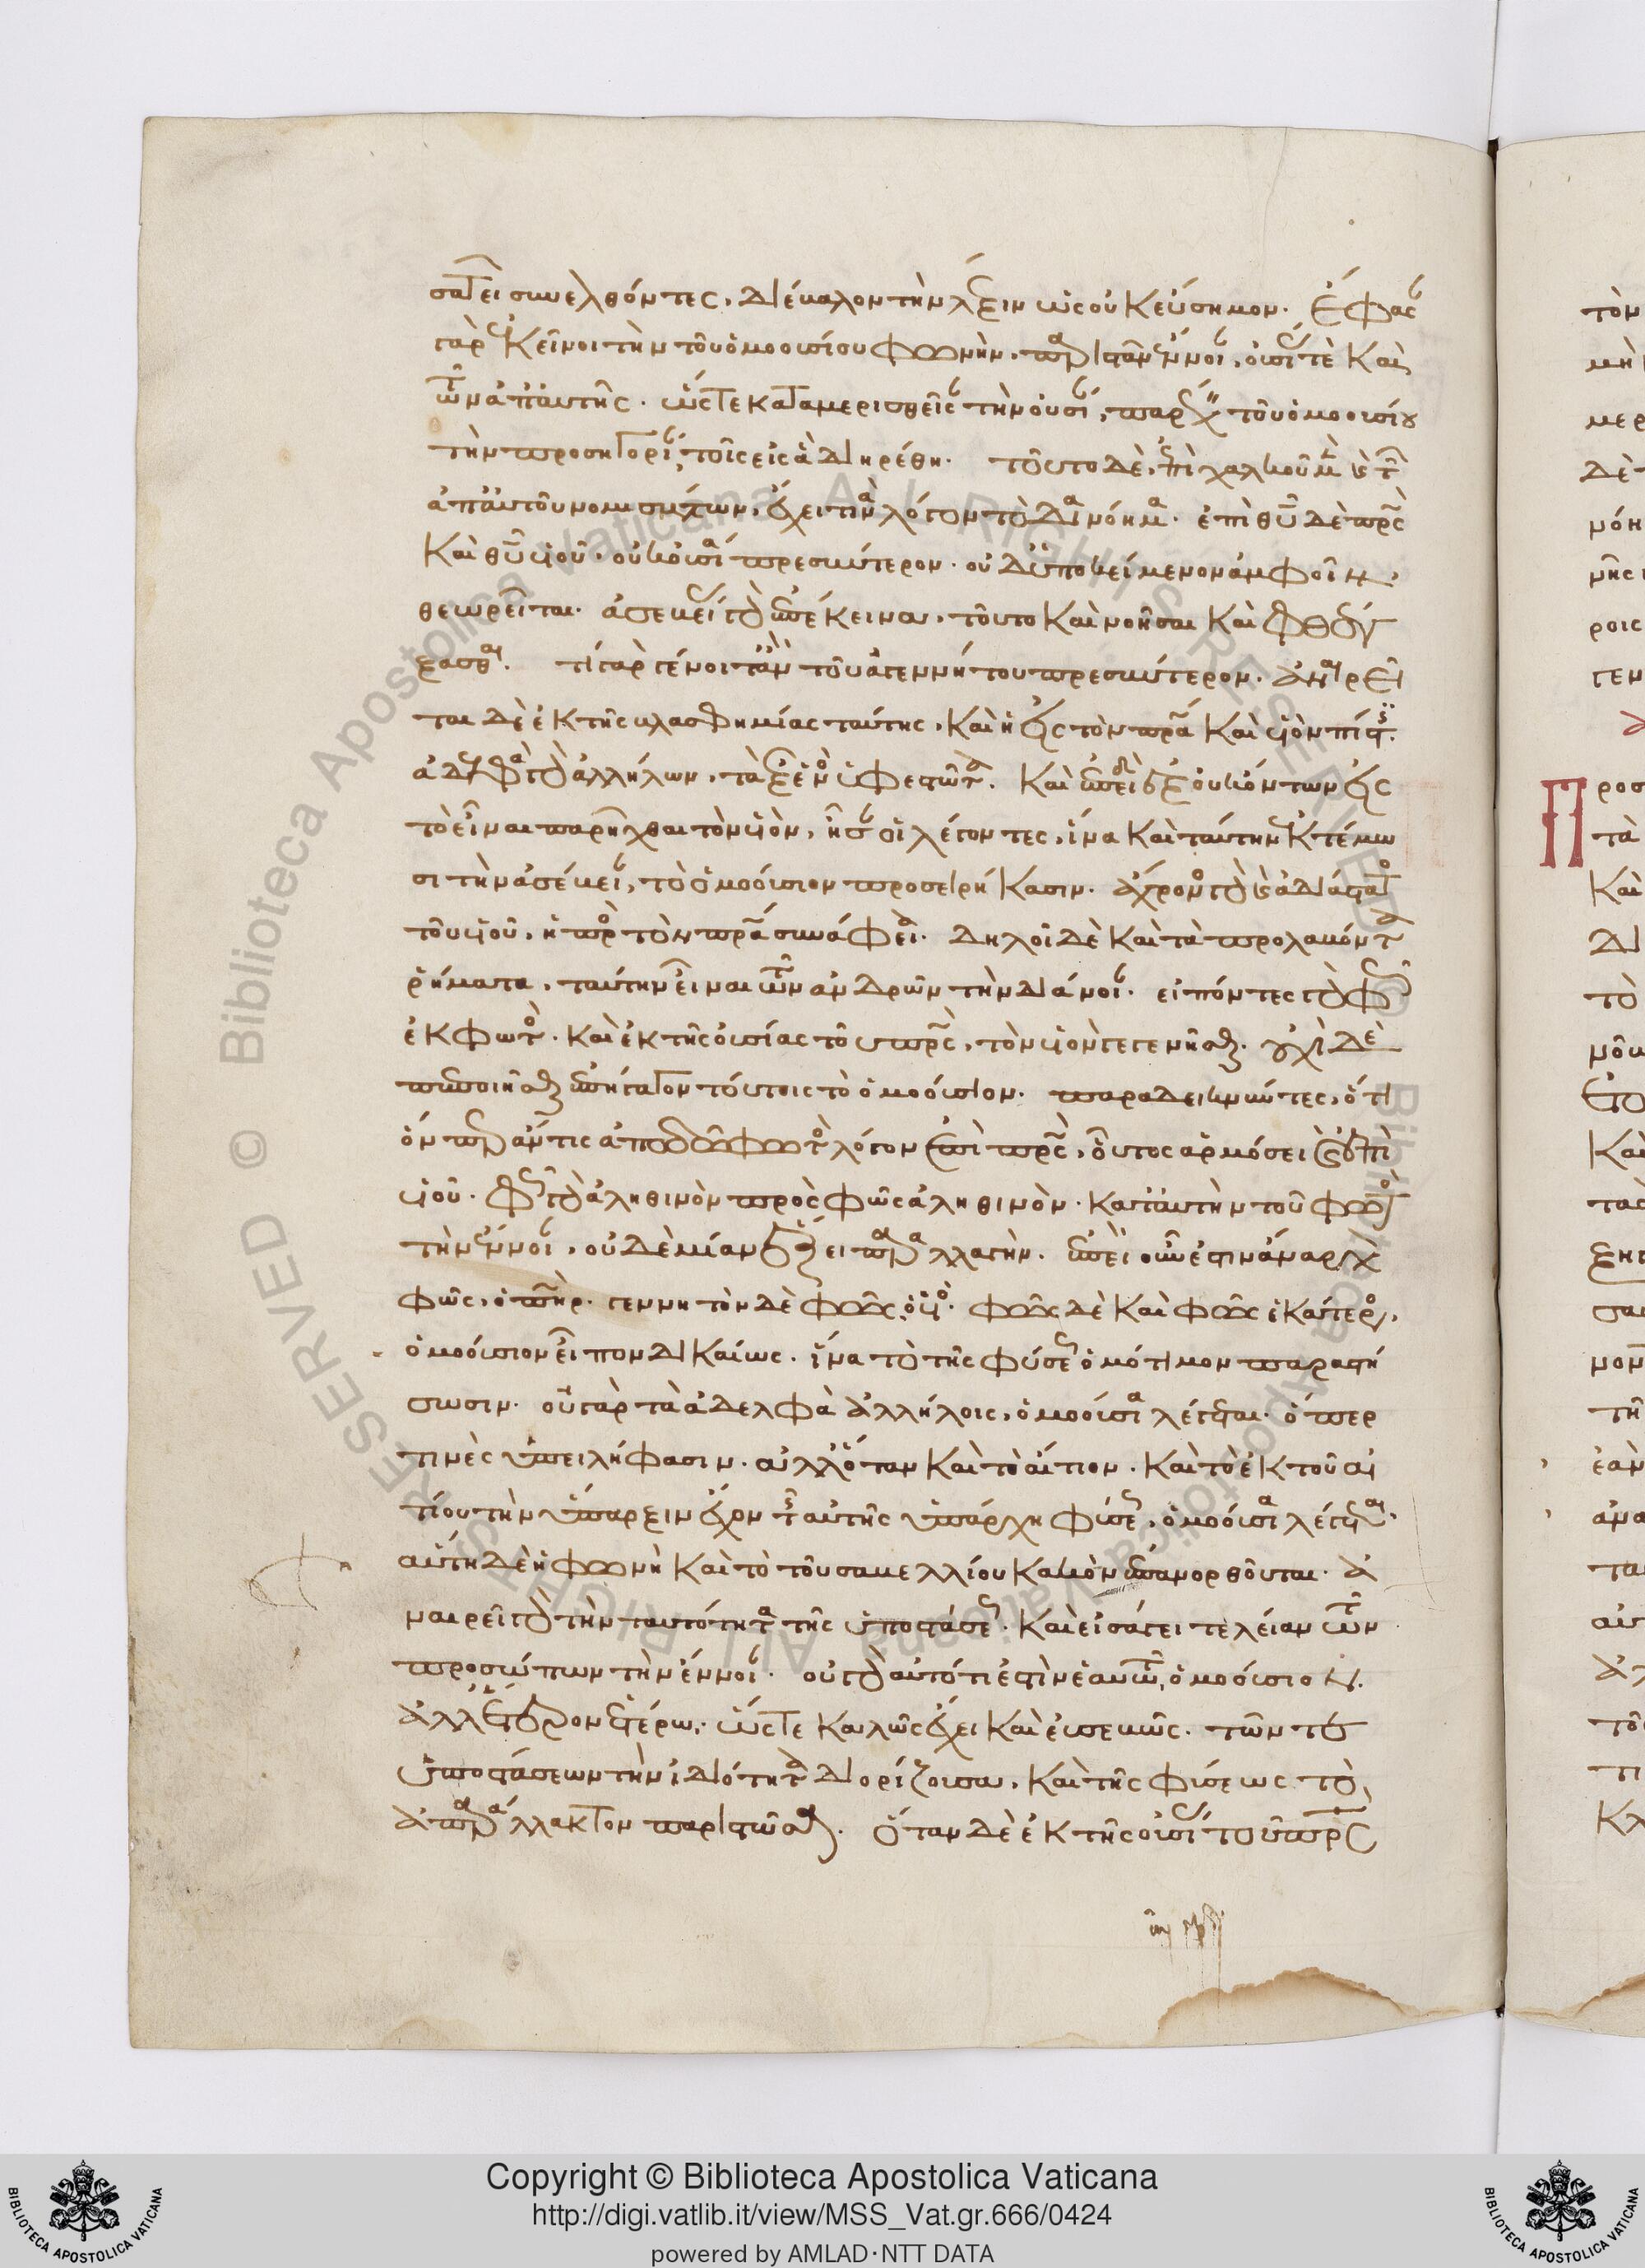 σατεῖ συνελθόντες, διέβαλον τὴν λέξιν ὡς οὐκ εὔσημον. ἔφασαν
γὰρ ἐκεῖνοι τὴν τοῦ ὁμοουσίου φωνὴν, παριστᾶν ἔννοιαν, οὐσίας τὲ καὶ
τῶν ἀπ' αὐτῆς. ὥστε καταμερισθεῖσαν τὴν οὐσίαν, παρέχειν τοῦ ὁμοουσίου
τὴν προσηγορίαν, τοῖς εἰς ἃ διηρέθη. τοῦτο δὲ, ἐπὶ χαλκοῦ μὲν καὶ τῶν
ἀπ' αὐτοῦ νομισμάτων, ἔχει τινὰ λόγον τὸ διανόημα. ἐπὶ θυ δὲ πρς
καὶ θυ υἱοῦ. οὐκ οὐσία πρεσβύτερον. οὐδ' ὑποκείμενον ἀμφοῖν
θεωρεῖται. ἀσεβείας γὰρ ἐπέκεινα, τοῦτο καὶ νοῆσαι καὶ φθέγ
ξασθαι. τί γὰρ γένοιτ' ἂν τοῦ ἀγεννήτου πρεσβύτερον. ἀναιρεῖ
ται δὲ ἐκ τῆς βλασφημίας ταύτης, καὶ ἡ εἰς τὸν πρα καὶ υἱὸν πίστις.
ἀδελφὰ γὰρ ἀλλήλων, τὰ ἐξ ἑνὸς ὑφεστῶτα. καὶ ἐπειδὴ ἐξ οὐκ ὄντων εἰς
τὸ εἶναι παρῆχθαι τὸν υἱὸν, ἦσαν οἱ λέγοντες, ἵνα καὶ ταύτην ἐκτέμω
σι τὴν ἀσέβειαν, τὸ ὁμοούσιον προσειρήκασιν. ἄχρονος γὰρ καὶ ἀδιάστατος
τοῦ υἱοῦ, ἡ πρὸς τὸν πρα συνάφεια. δηλοῖ δὲ καὶ τὰ προλαβόντα
ῥήματα, ταύτην εἶναι τῶν ἀνδρῶν τὴν διάνοιαν. εἰπόντες γὰρ φῶς
ἐκ φωτὸς. καὶ ἐκ τῆς οὐσίας τοῦ πρς, τὸν υἱὸν γεγενῆσθαι. οὐχὶ δὲ
πεποιῆσθαι ἐπήγαγον τούτοις τὸ ὁμοούσιον. παραδεικνύντες, ὅτι
ὃν περ ἄν τις ἀποδῶ φωτὸς λόγον ἐπὶ πρς, οὗτος ἁρμόσει καὶ ἐπὶ
υἱοῦ. φῶς γὰρ ἀληθινὸν πρὸς φῶς ἀληθινὸν. κατ' αὐτὴν τοῦ φωτὸς
τὴν ἔννοιαν, οὐδεμίαν ἕξει παραλλαγήν. ἐπεὶ οὖν ἐστιν ἄναρχον
φῶς, ὁ πηρ. γεννητὸν δὲ φῶς, ὁ υἱός. φῶς δὲ καὶ φῶς ἑκάτερος,
ὁμοούσιον εἶπον δικαίως. ἵνα τὸ τῆς φύσεως ὁμότιμον παραστή
σωσιν. οὐ γὰρ τὰ ἀδελφὰ ἀλλήλοις, ὁμοούσια λέγεται. ὅπερ
τινὲς ὑπειλήφασιν. ἀλλ' ὅταν καὶ τὸ αἴτιον. καὶ τὸ ἐκ τοῦ αἰ
τίου τὴν ὕπαρξιν ἔχον τῆς αὐτῆς ὑπάρχη φύσεως, ὁμοούσια λέγεται.
αὕτη δὲ ἡ φωνὴ καὶ τὸ τοῦ σαβελλίου κακὸν ἐπανορθοῦται. ἀ
ναιρεῖ γὰρ τὴν ταυτότητα τῆς ὑποστάσεως. καὶ εἰσάγει τελείαν τῶν
προσώπων τὴν ἔννοιαν. οὐ γὰρ αὐτό τι ἐστὶν ἑαυτῶ, ὁμοούσιον.
ἀλλ' ἕτερον ἑτέρω. ὥστε καλῶς ἔχει καὶ εὐσεβῶς. τῶν τε
ὑποστάσεων τὴν ἰδιότητα διορίζουσα, καὶ τῆς φύσεως τὸ
ἀπαράλλακτον παριστῶσα. ὅταν δὲ ἐκ τῆς οὐσίας τοῦ πρς
Copyright © Biblioteca Apostolica Vaticana
http://digi.vatlib.it/view/MSS_Vat.gr.666/0424
powered by AMLAD·NTT DATA